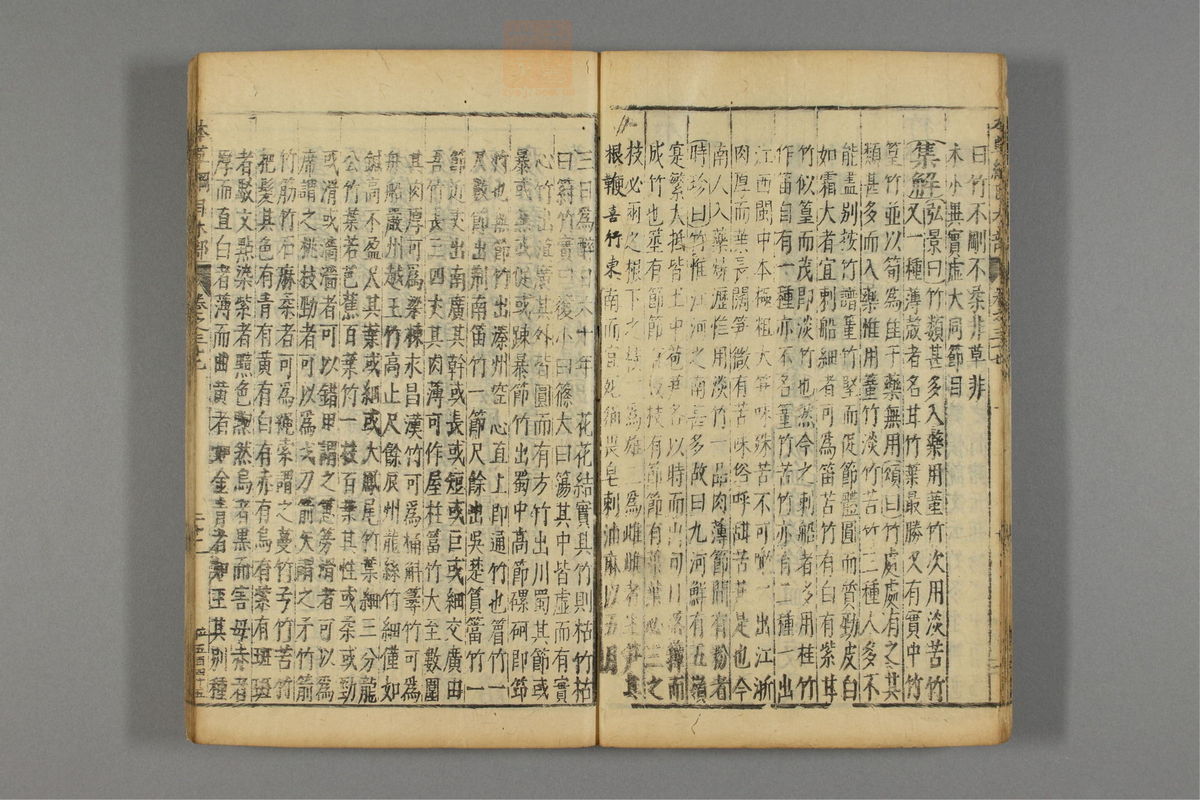 曰竹不剛不柔非草非
木小異實虛大同節目
集解弘景曰竹類甚多入藥用菫竹次用淡苦竹
又一種薄殼者名甘竹葉最勝又有實中竹
篁竹並以筍爲佳于藥無用頌曰竹處處有之其
類甚多而入藥惟用菫竹淡竹苦竹三種人多不
能盡別按竹譜菫竹堅而促節體圓而質勁皮白
如霜大者宜刺船細者可爲笛苦竹有白有紫甘
竹似篁而茂即淡竹也然今之刺船者多用桂竹
作笛自有一種亦不名菫竹苦竹亦有二種一出
江西閩中本極粗大筍味殊苦不可啖一出江浙
肉厚而葉長闊筍微有苦味俗呼甜苦筍是也今
南人入藥燒瀝惟用淡竹一品肉薄節間有粉者
時珍曰竹惟江河之南甚多故曰九河鮮有五嶺
寔繁大抵皆土中苞筍各以時而出旬日落籜而
成竹也莖有節節有枝枝有節節有葉葉必三之
枝必兩之根下之枝一爲雄二爲雌雌者生筍其
根鞭喜行東南而宜死猫畏皂刺油麻以五月
三日爲醉日六十年一花花結實其竹則枯竹枯
曰䈙竹實曰䈽小曰篠大曰簜其中皆虛而有實
心竹出滇廣其外皆圓而有方竹出川蜀其節或
暴或無或促或疎暴節竹出蜀中高節磥砢即筇
竹也無節竹出溱州空心直上即通竹也篃竹一
尺數節出荆南笛竹一節尺餘出吳楚篔簹竹一
節近丈出南廣其幹或長或短或巨或細交廣由
吾竹長三四丈其肉薄可作屋柱䈏竹大至數圍
其肉厚可爲梁棟永昌漢竹可爲桶斛䈏竹可爲
舟船嚴州越王竹高止尺餘辰州龍絲竹細僅如
鍼高不盈尺其葉或細或大鳳尾竹葉細三分龍
公竹葉若芭蕉百葉竹一枝百葉其性或柔或勁
或滑或濇濇者可以錯甲謂之䈚簩滑者可以爲
席謂之桃枝勁者可以爲戈刀箭矢謂之矛竹箭
竹筋竹石麻柔者可爲繩索謂之蔓竹弓竹苦竹
把髮其色有青有黃有白有赤有烏有紫有斑斑
者駁文點染紫者黯色黝然烏者黑而害母赤者
厚而直白者薄而曲黃者如金青者如玉其別種
本草綱目木部
卷之三十七